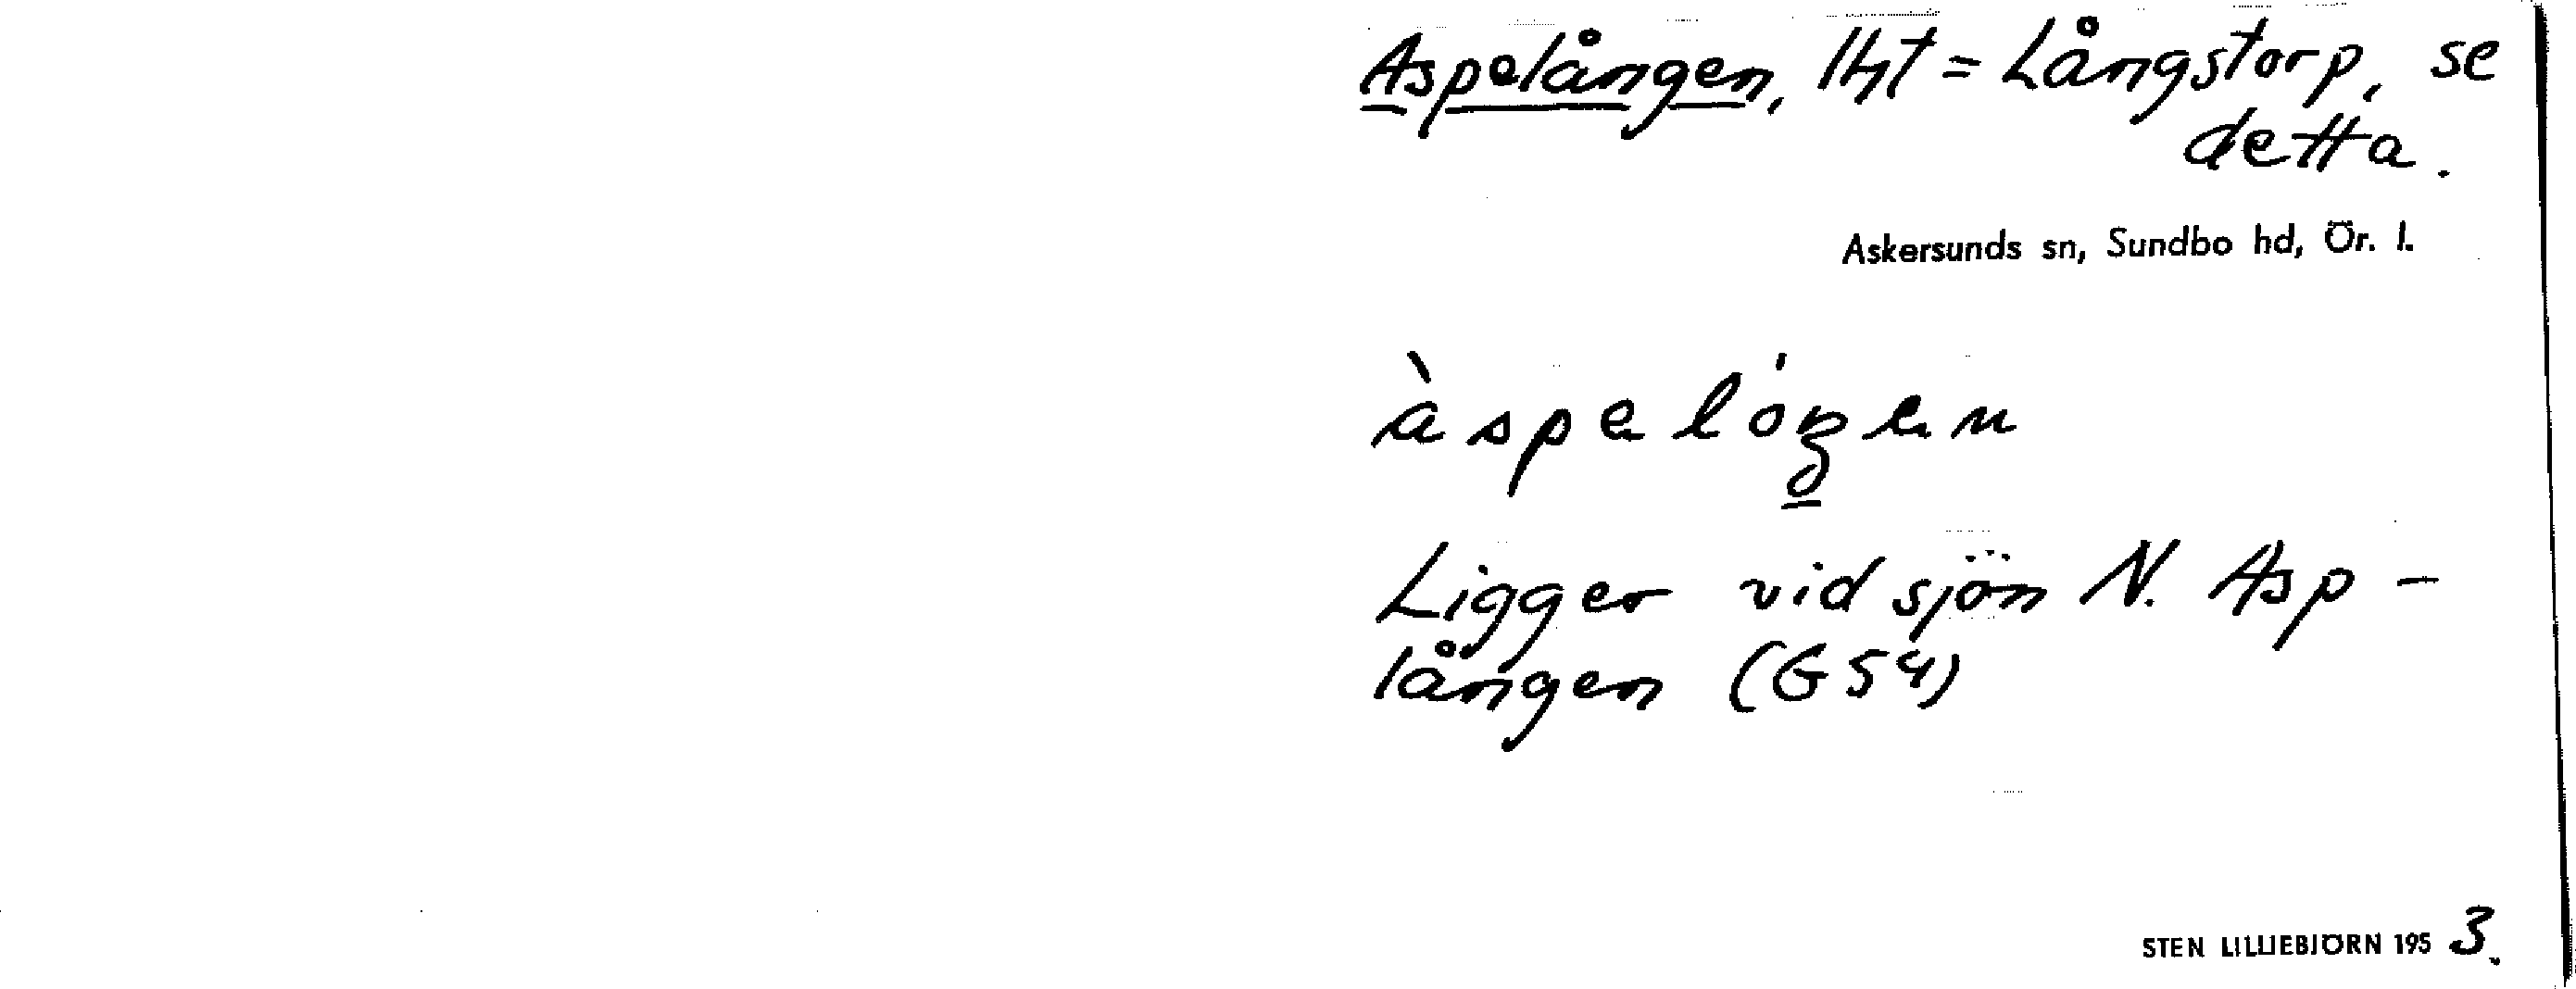 Aspelången, lht = Långstorp, se
detta.
Askersunds sn, Sundbo hd, Ör. l.
àspelóŋen
Ligger vid sjön N. Asp-
lången (G54)
STEN LILLIEBJÖRN 1953.